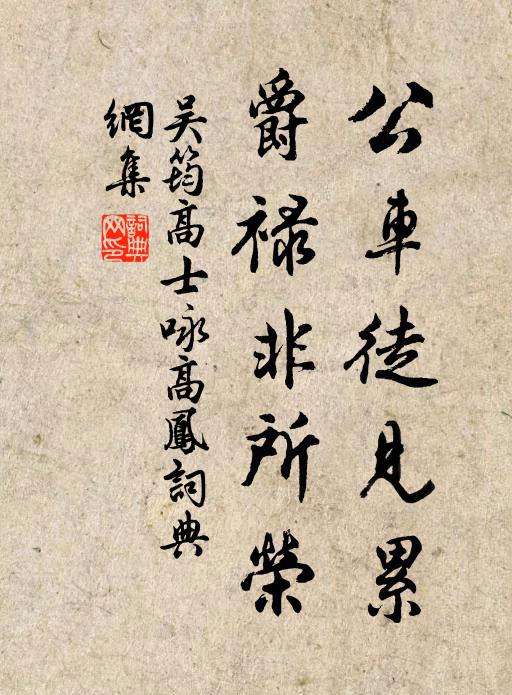 公車徒見累
爵祿非所榮
吴筠高士咏高鳳詞典
網集
詞典
网印